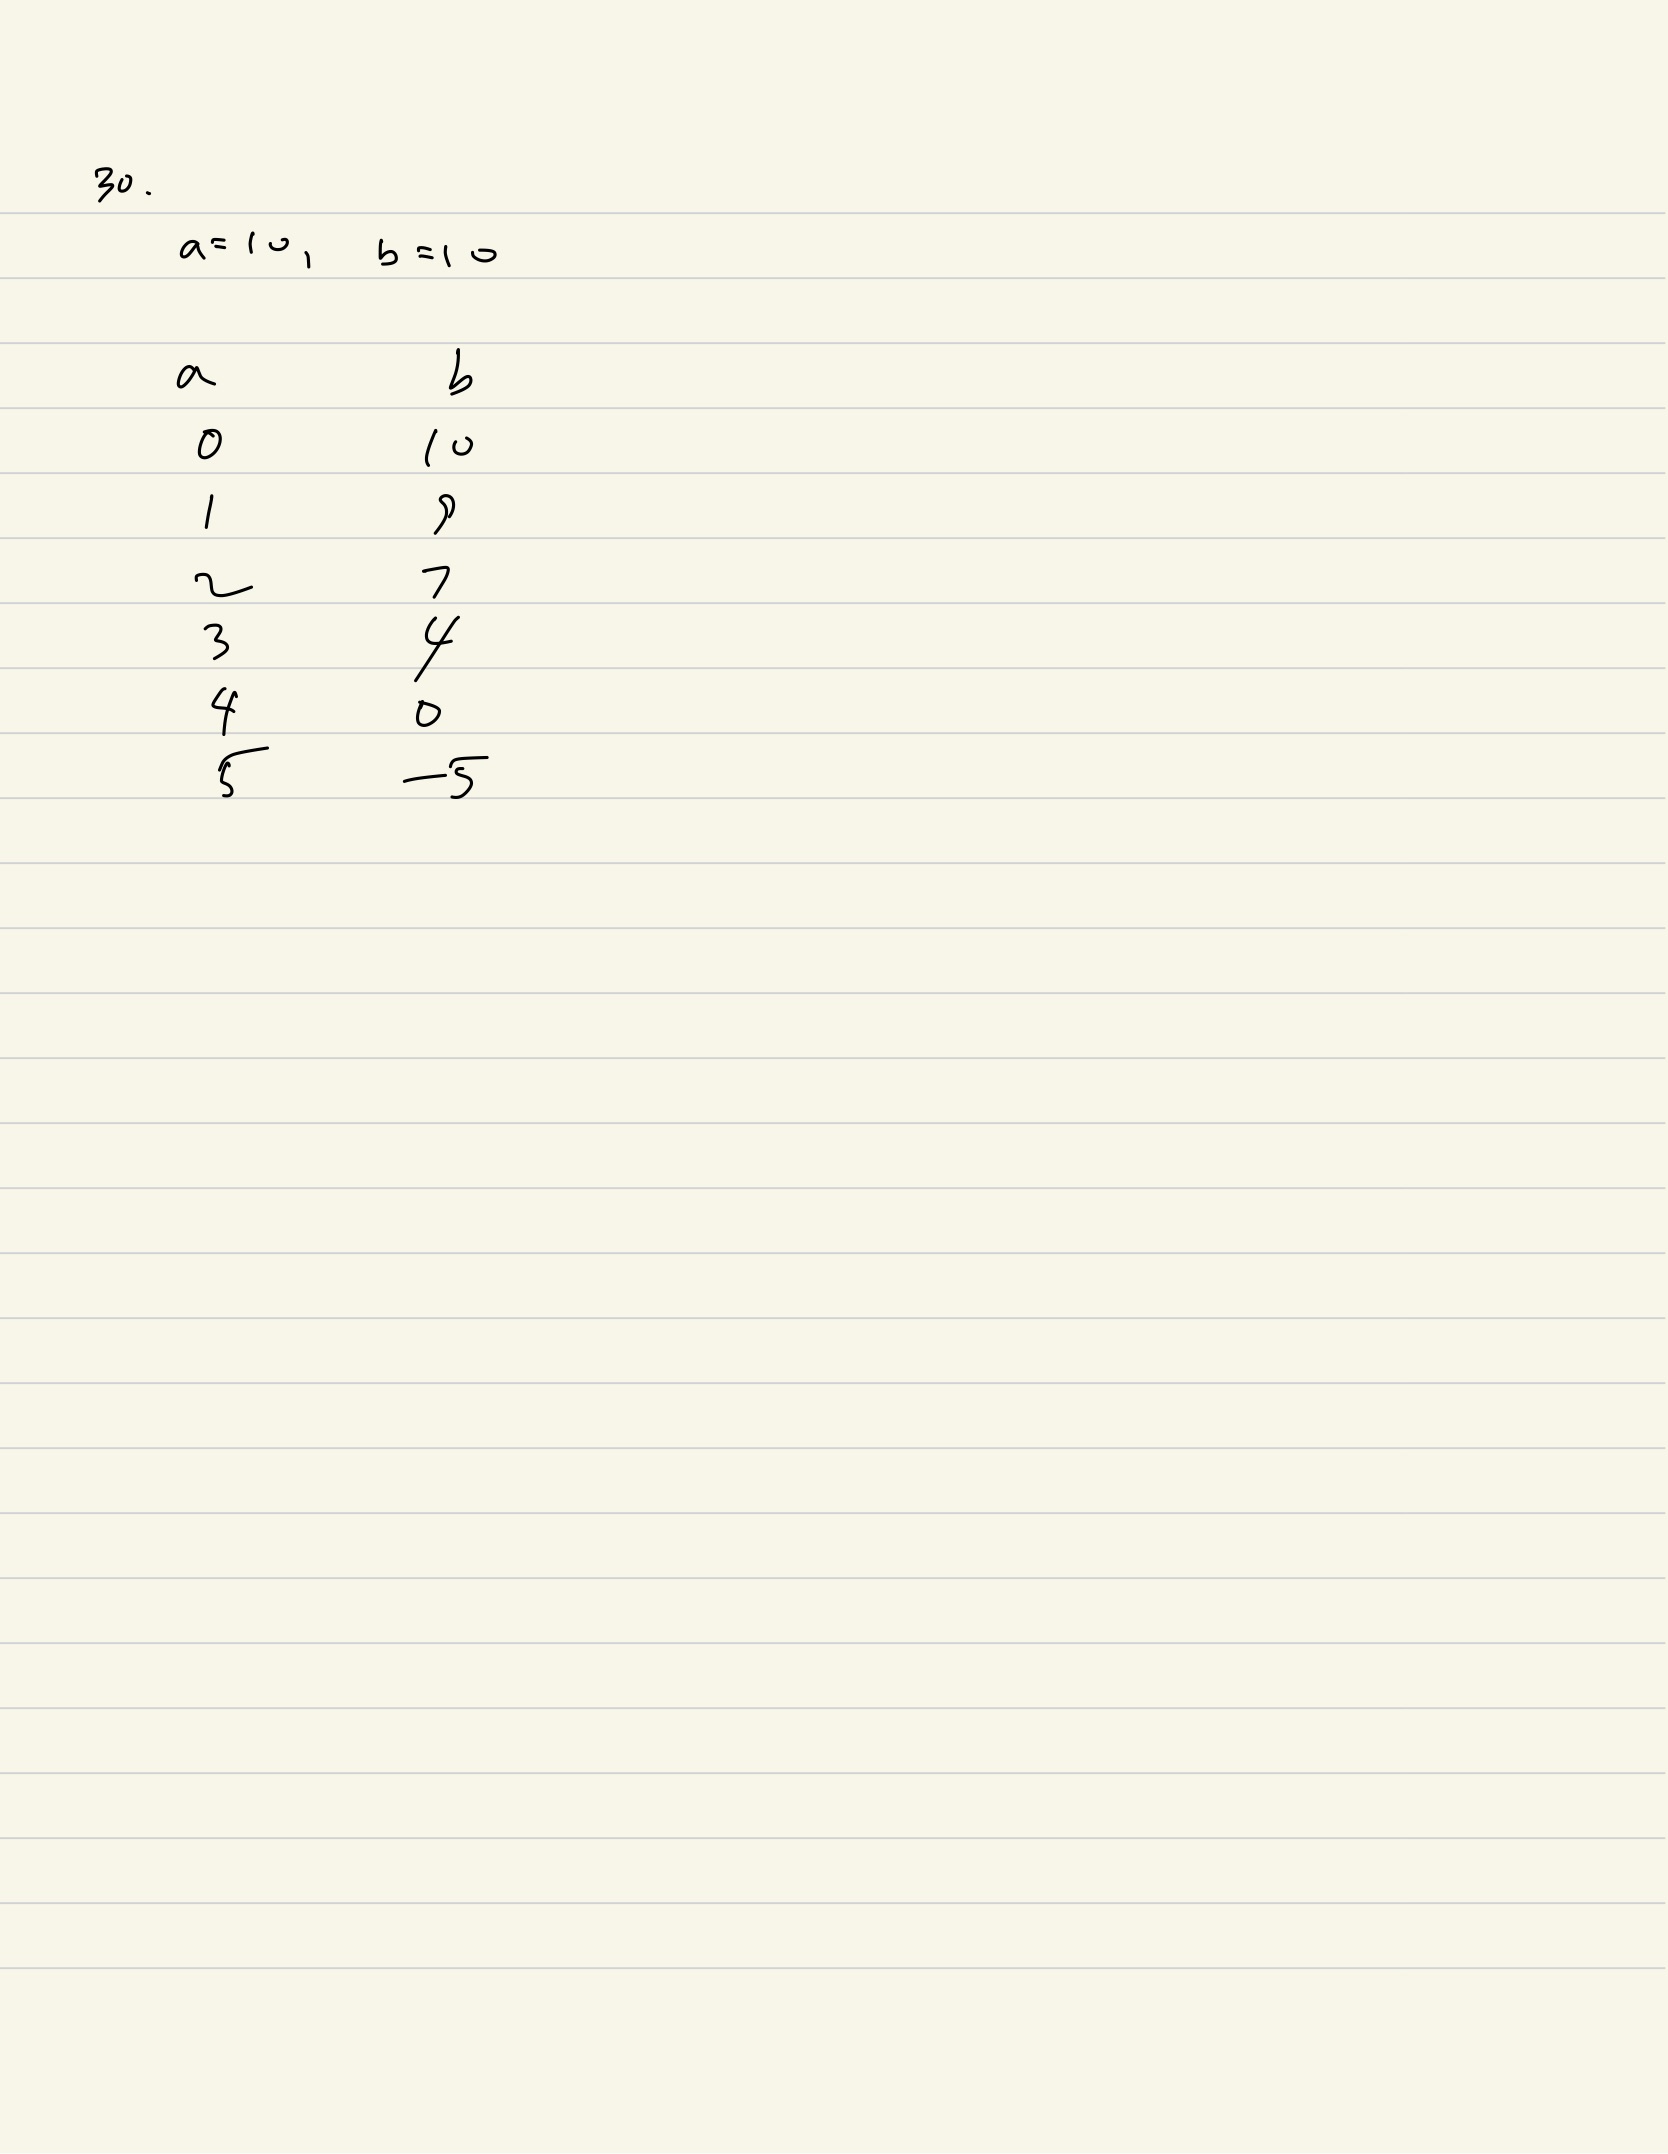 30.
a=10, b=10
a b
0 10
1 9
2 7
3 4
4 0
5 -5